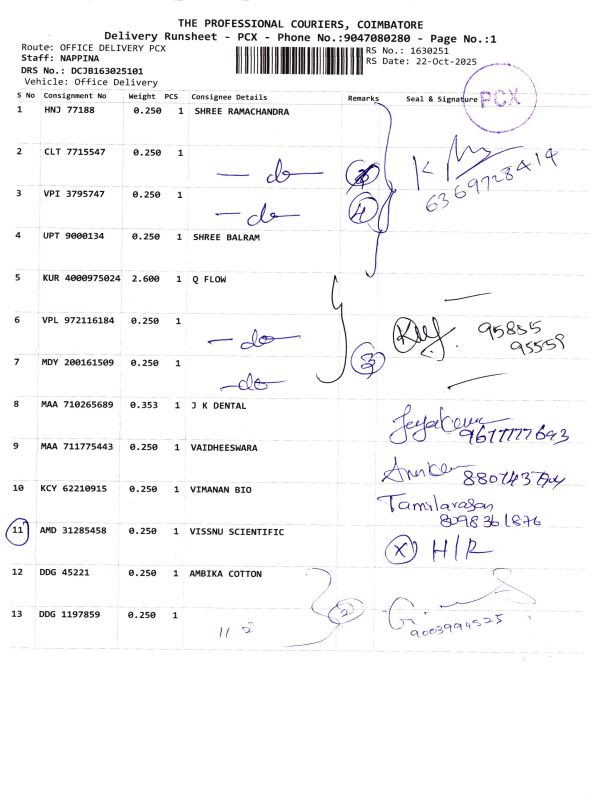 THE PROFESSIONAL COURIERS, COIMBATORE
Delivery Runsheet - PCX - Phone No.:9047080280 - Page No.:1
Route: OFFICE DELIVERY PCX
Staff: NAPPINA
DRS No.: DCJB163025101
Vehicle: Office Delivery
RS No.: 1630251
RS Date: 22-Oct-2025
PCX
S No Consignment No Weight PCS Consignee Details Remarks Seal & Signature
1 HNJ 77188 0.250 1 SHREE RAMACHANDRA
2 CLT 7715547 0.250 1 — do —
6369728414
3 VPI 3795747 0.250 1 — do — 4
4 UPT 9000134 0.250 1 SHREE BALRAM
5 KUR 4000975024 2.600 1 Q FLOW
6 VPL 972116184 0.250 1 — do — 95835
95559
7 MDY 200161509 0.250 1 — do — 3
8 MAA 710265689 0.353 1 J K DENTAL
9677777643
9 MAA 711775443 0.250 1 VAIDHEESWARA
10 KCY 62210915 0.250 1 VIMANAN BIO Tamilarasan
8098361876
11 AMD 31285458 0.250 1 VISSNU SCIENTIFIC X H/R
12 DDG 45221 0.250 1 AMBIKA COTTON
13 DDG 1197859 0.250 1 2
9003994525